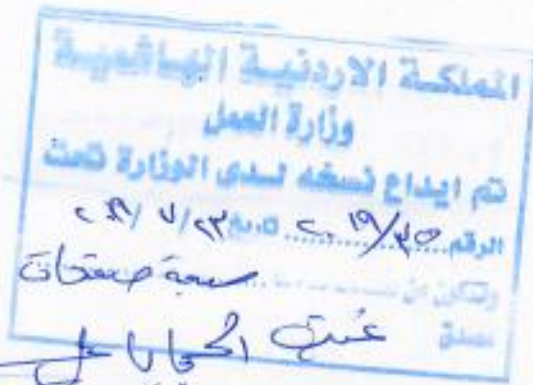 المملكة الاردنية الهاشمية
وزارة العمل
تم ايداع نسخه لدى الوزارة تحت
الرقم ٢٠١٩/٣٥ تاريخ ٢٣/٧/٢٠١٩
وتتكون من سبعة صفحات